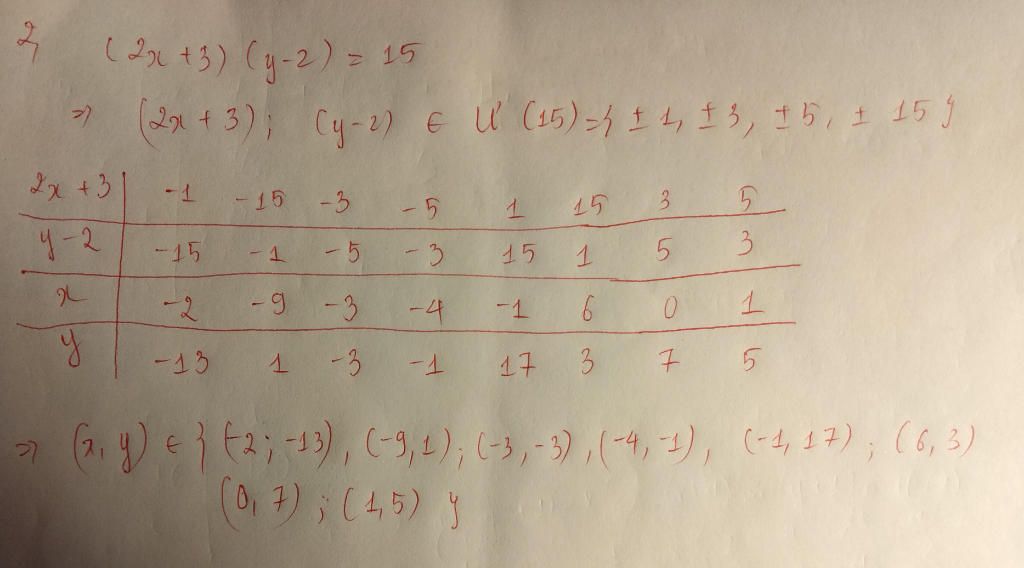 2, (2x + 3) (y - 2) = 15
=> (2x + 3); (y - 2) ∈ Ư (15) = { ± 1, ± 3, ± 5, ± 15 }
2x + 3 | -1 -15 -3 -5 1 15 3 5
y - 2 | -15 -1 -5 -3 15 1 5 3
x | -2 -9 -3 -4 -1 6 0 1
y | -13 1 -3 -1 17 3 7 5
=> (x, y) ∈ { (-2; -13), (-9, 1); (-3, -3), (-4, -1), (-1, 17); (6, 3)
(0, 7); (1, 5) }